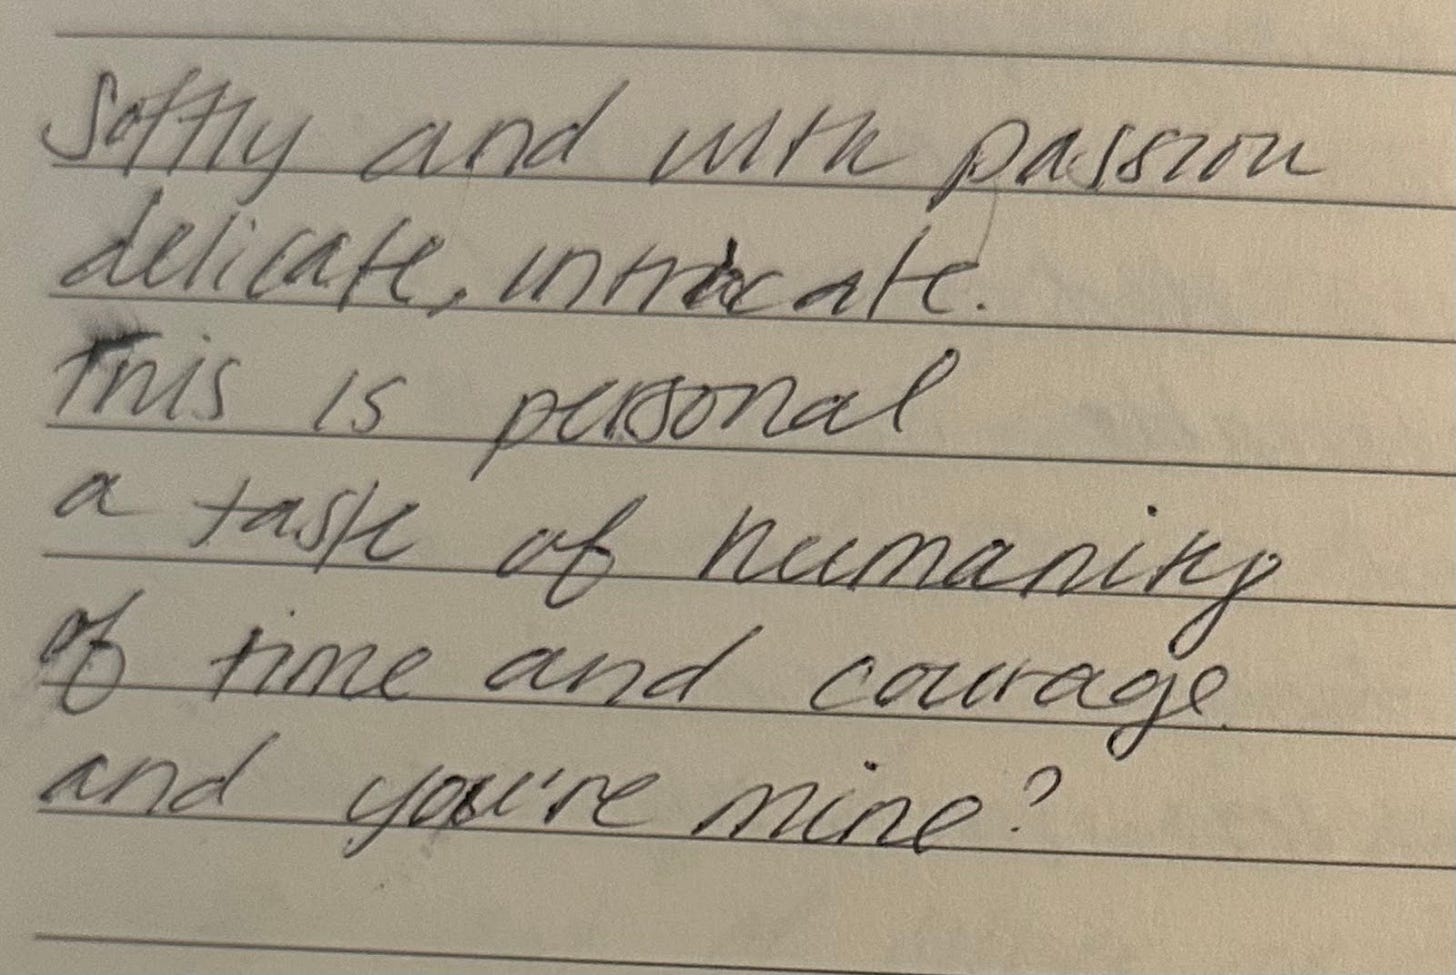 Softly and with passion
delicate, intricate.
This is personal
a task of humanity
of time and courage
and you're mine?